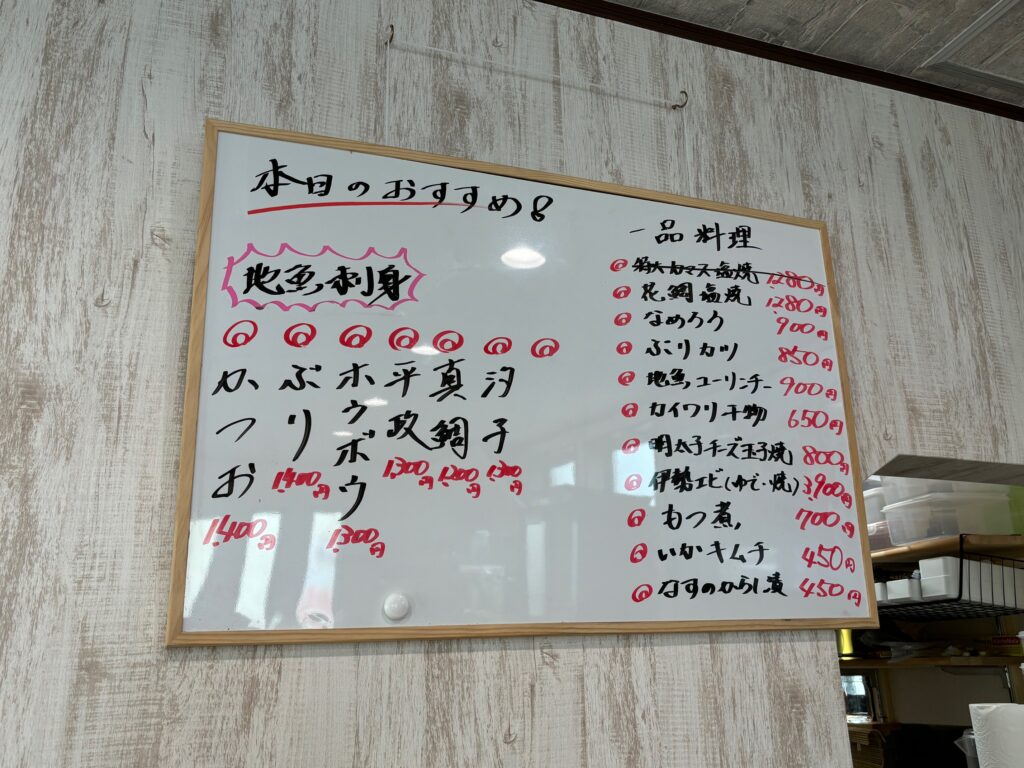 本日のおすすめ!
地魚刺身
かつお 1,400円
ぶり 1,400円
ホウボウ 1,300円
平政 1,300円
真鯛 1,200円
汐子 1,300円
一品料理
カマス塩焼 1,280円
花鯛塩焼 1,280円
なめろう 900円
ぶりカツ 850円
地魚ユーリンチー 900円
カイワリ干物 650円
明太子チーズ玉子焼 800円
伊勢エビ(ゆで・焼) 3,900円
もつ煮 700円
いかキムチ 450円
なすのからし漬 450円